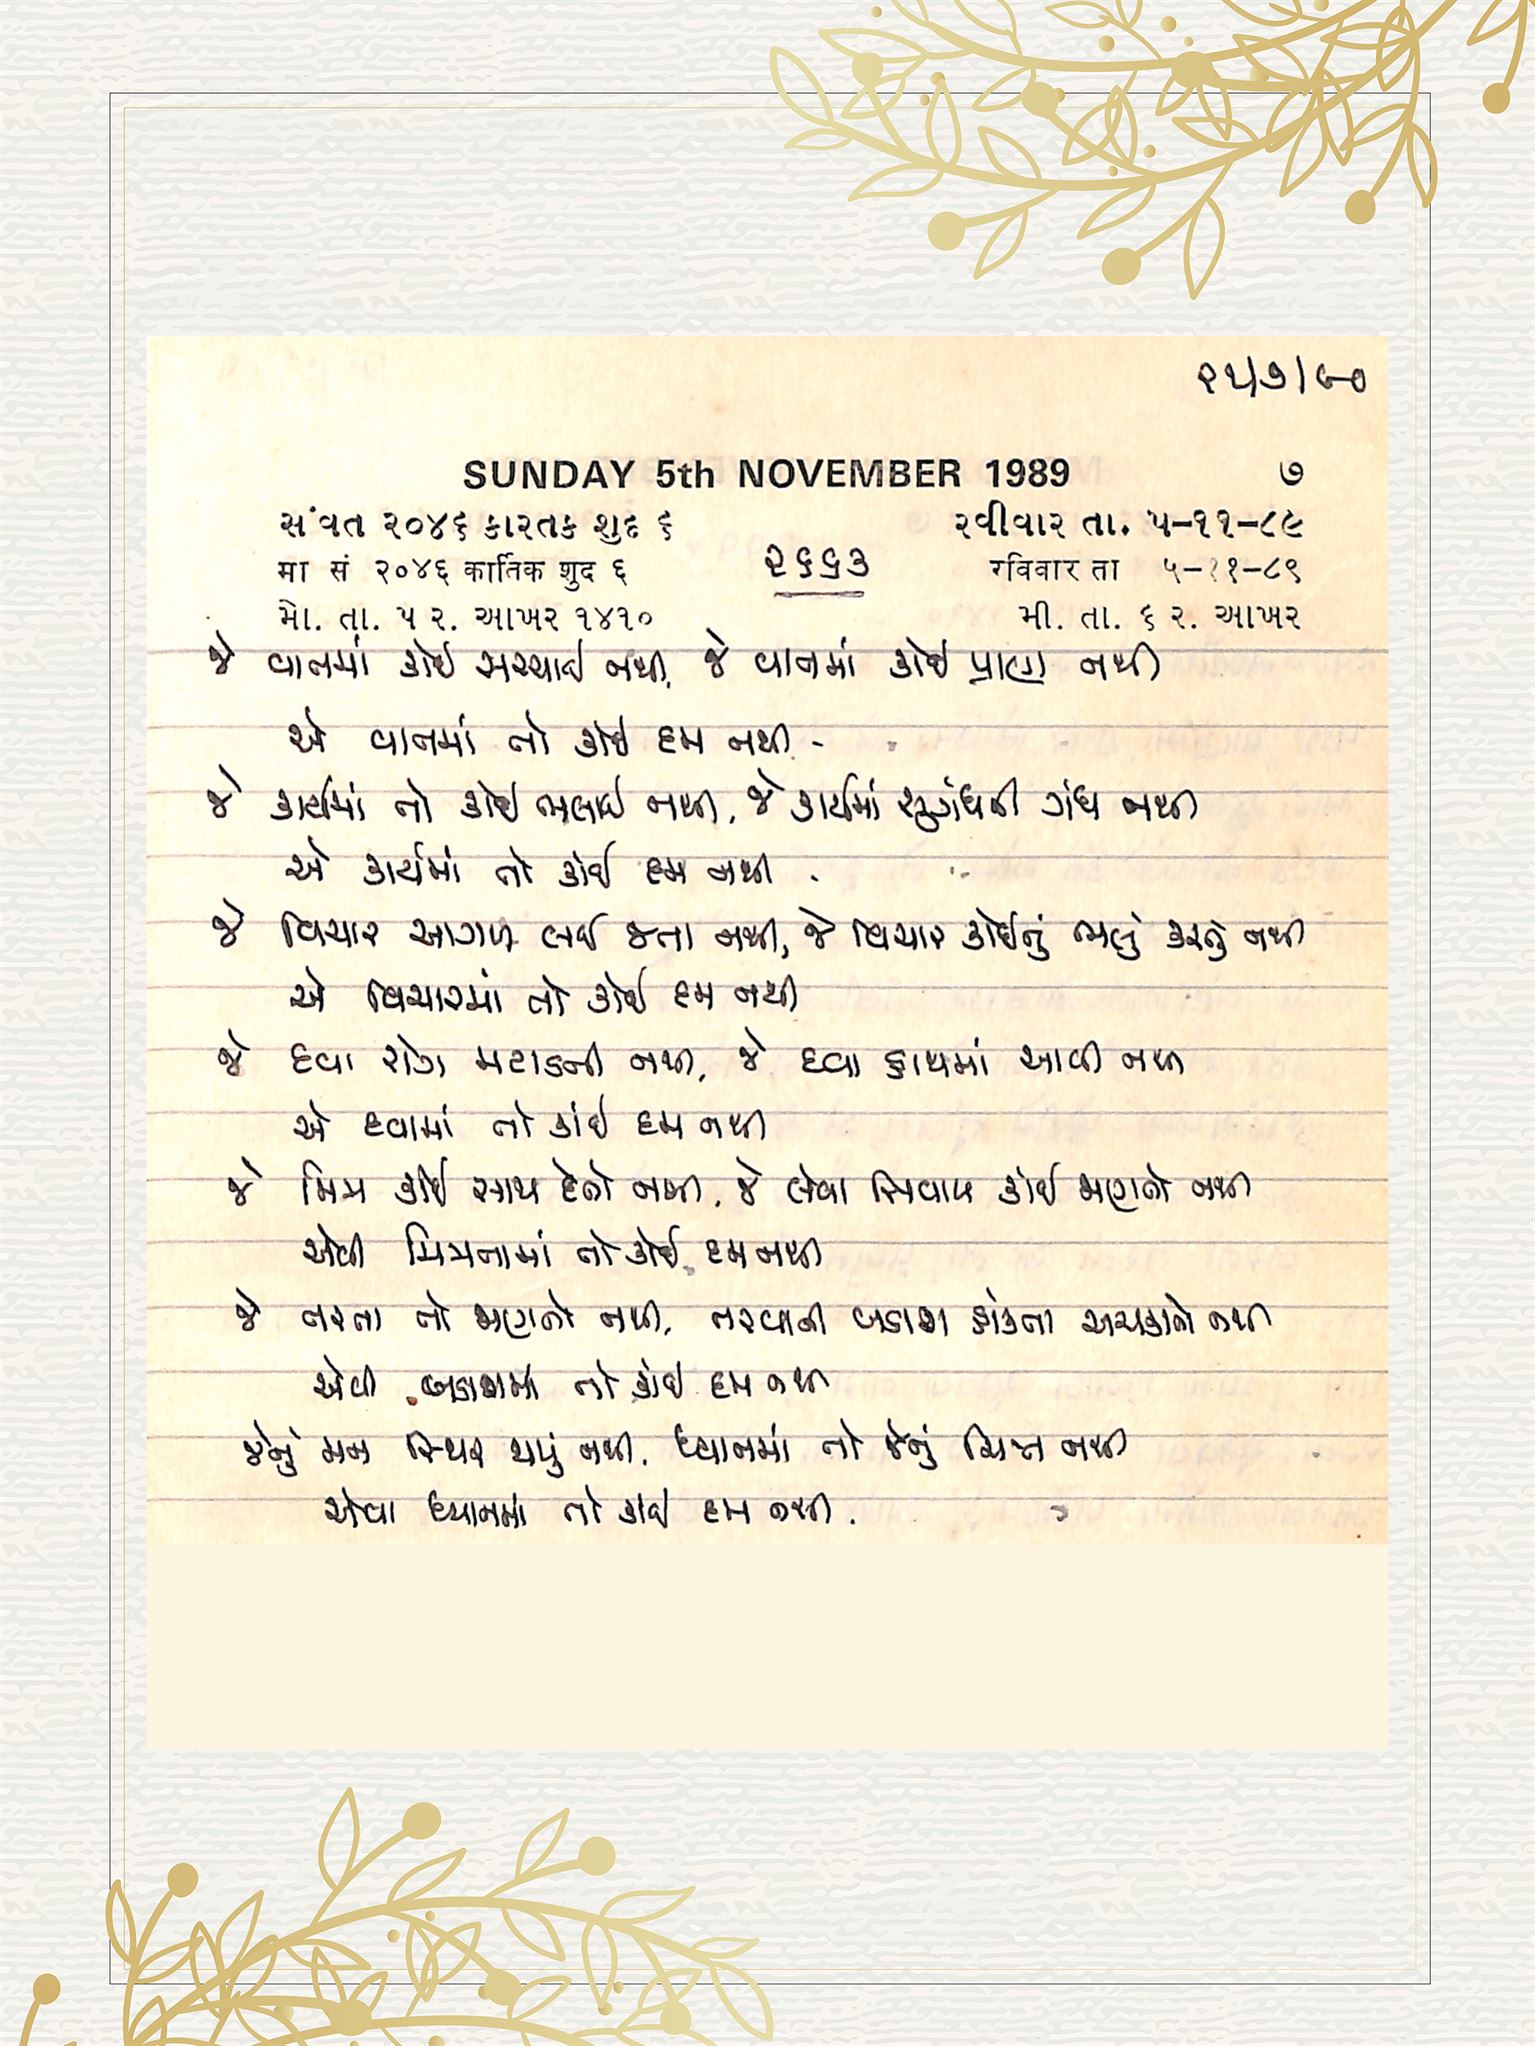 ૨૫/૭/૯૦
SUNDAY 5th NOVEMBER 1989 ૭
સંવત ૨૦૪૬ કારતક શુદ ૬ રવીવાર તા. ૫-૧૧-૮૯
मा सं २०४६ कार्तिक शुद ६ ૨૬૬૩ रविवार ता ५-११-८९
મો. તા. ૫ ર. આખર ૧૪૧૦ મી. તા. ૬ ર. આખર
જે વાતમાં કોઈ સચ્ચાઈ નથી, જે વાતમાં કોઈ પ્રાણ નથી
એ વાતમાં તો કોઈ દમ નથી -
જે કાર્યમાં તો કોઈ ભલાઈ નથી, જે કાર્યમાં સુગંધની ગંધ નથી
એ કાર્યમાં તો કોઈ દમ નથી .
જે વિચાર આગળ લઈ જતા નથી, જે વિચાર કોઈનું ભલું કરતું નથી
એ વિચારમાં તો કોઈ દમ નથી
જે દવા રોગ મટાડતી નથી, જે દવા હાથમાં આવી નથી
એ દવામાં તો કાંઈ દમ નથી
જે મિત્ર કોઈ સાથ દેતો નથી, જે લેવા સિવાય કોઈ જાણતો નથી
એવી મિત્રતામાં તો કોઈ દમ નથી
જે તરતા તો જાણતો નથી, તરવાની બડાશ હાંકતા અચકાતો નથી
એવી બડાશમાં તો કોઈ દમ નથી
જેનું મન સ્થિર થયું નથી, ધ્યાનમાં તો જેનું ચિત્ત નથી
એવા ધ્યાનમાં તો કોઈ દમ નથી .